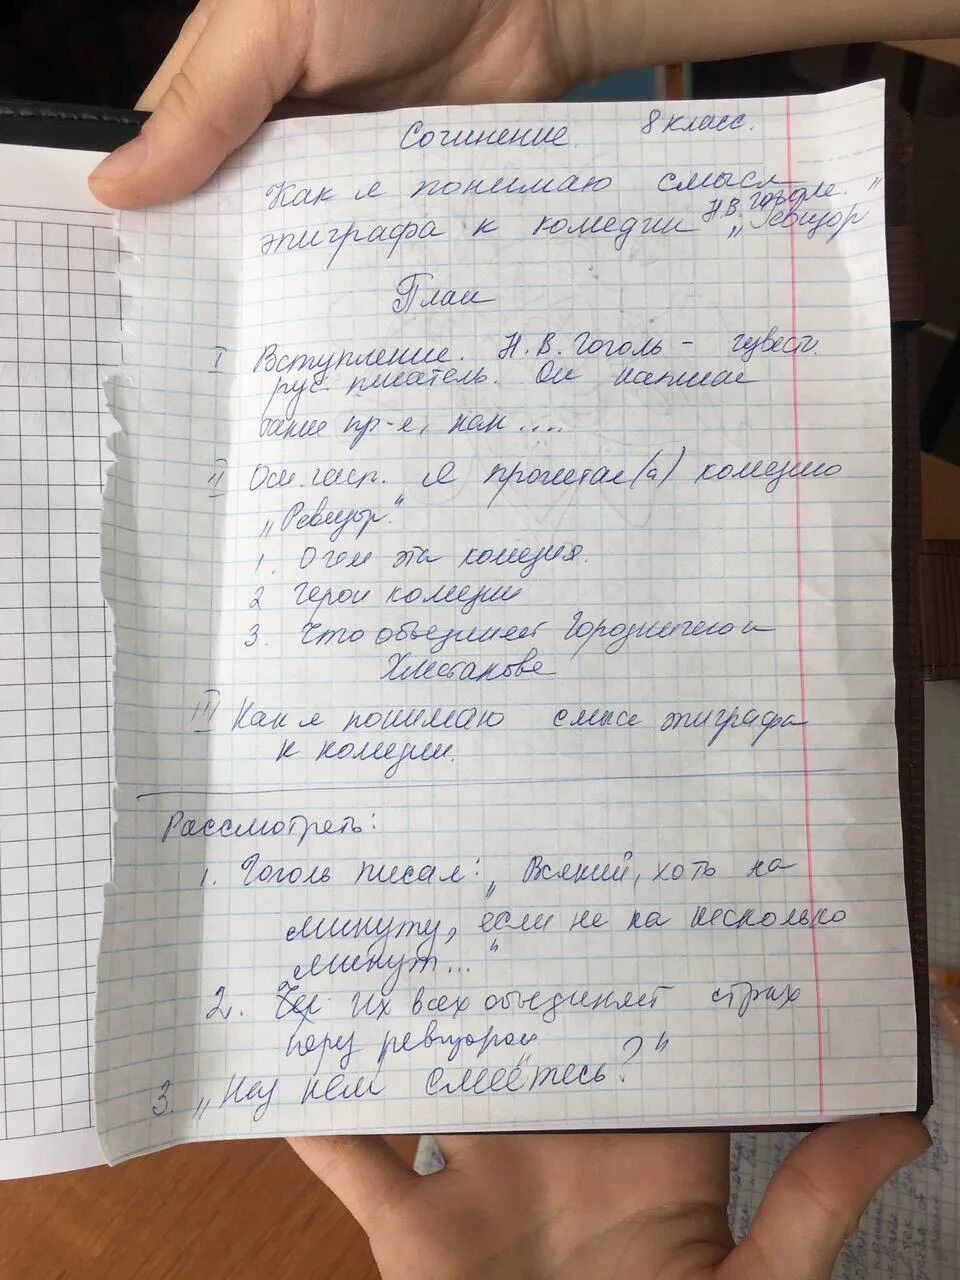 Сочинение. 8 класс.
Как я понимаю смысл
эпиграфа к комедии Н.В. Гоголя „Ревизор"
План
I Вступление. Н. В. Гоголь –
рус писатель. Он написал
такие пр-я, как ....
II Осн. часть. Я прочитал(а) комедию
„Ревизор."
1. О чем эта комедия.
2 Герои комедии
3. Что объединяет Городничего и
Хлестакове
III Как я понимаю смысл эпиграфа
к комедии.
Рассмотреть:
1. Гоголь писал: „Всякий, хоть на
минуту, если не на несколько
минут..."
2. их всех объединяет страх
перед ревизором
3. „Над кем смеётесь?"